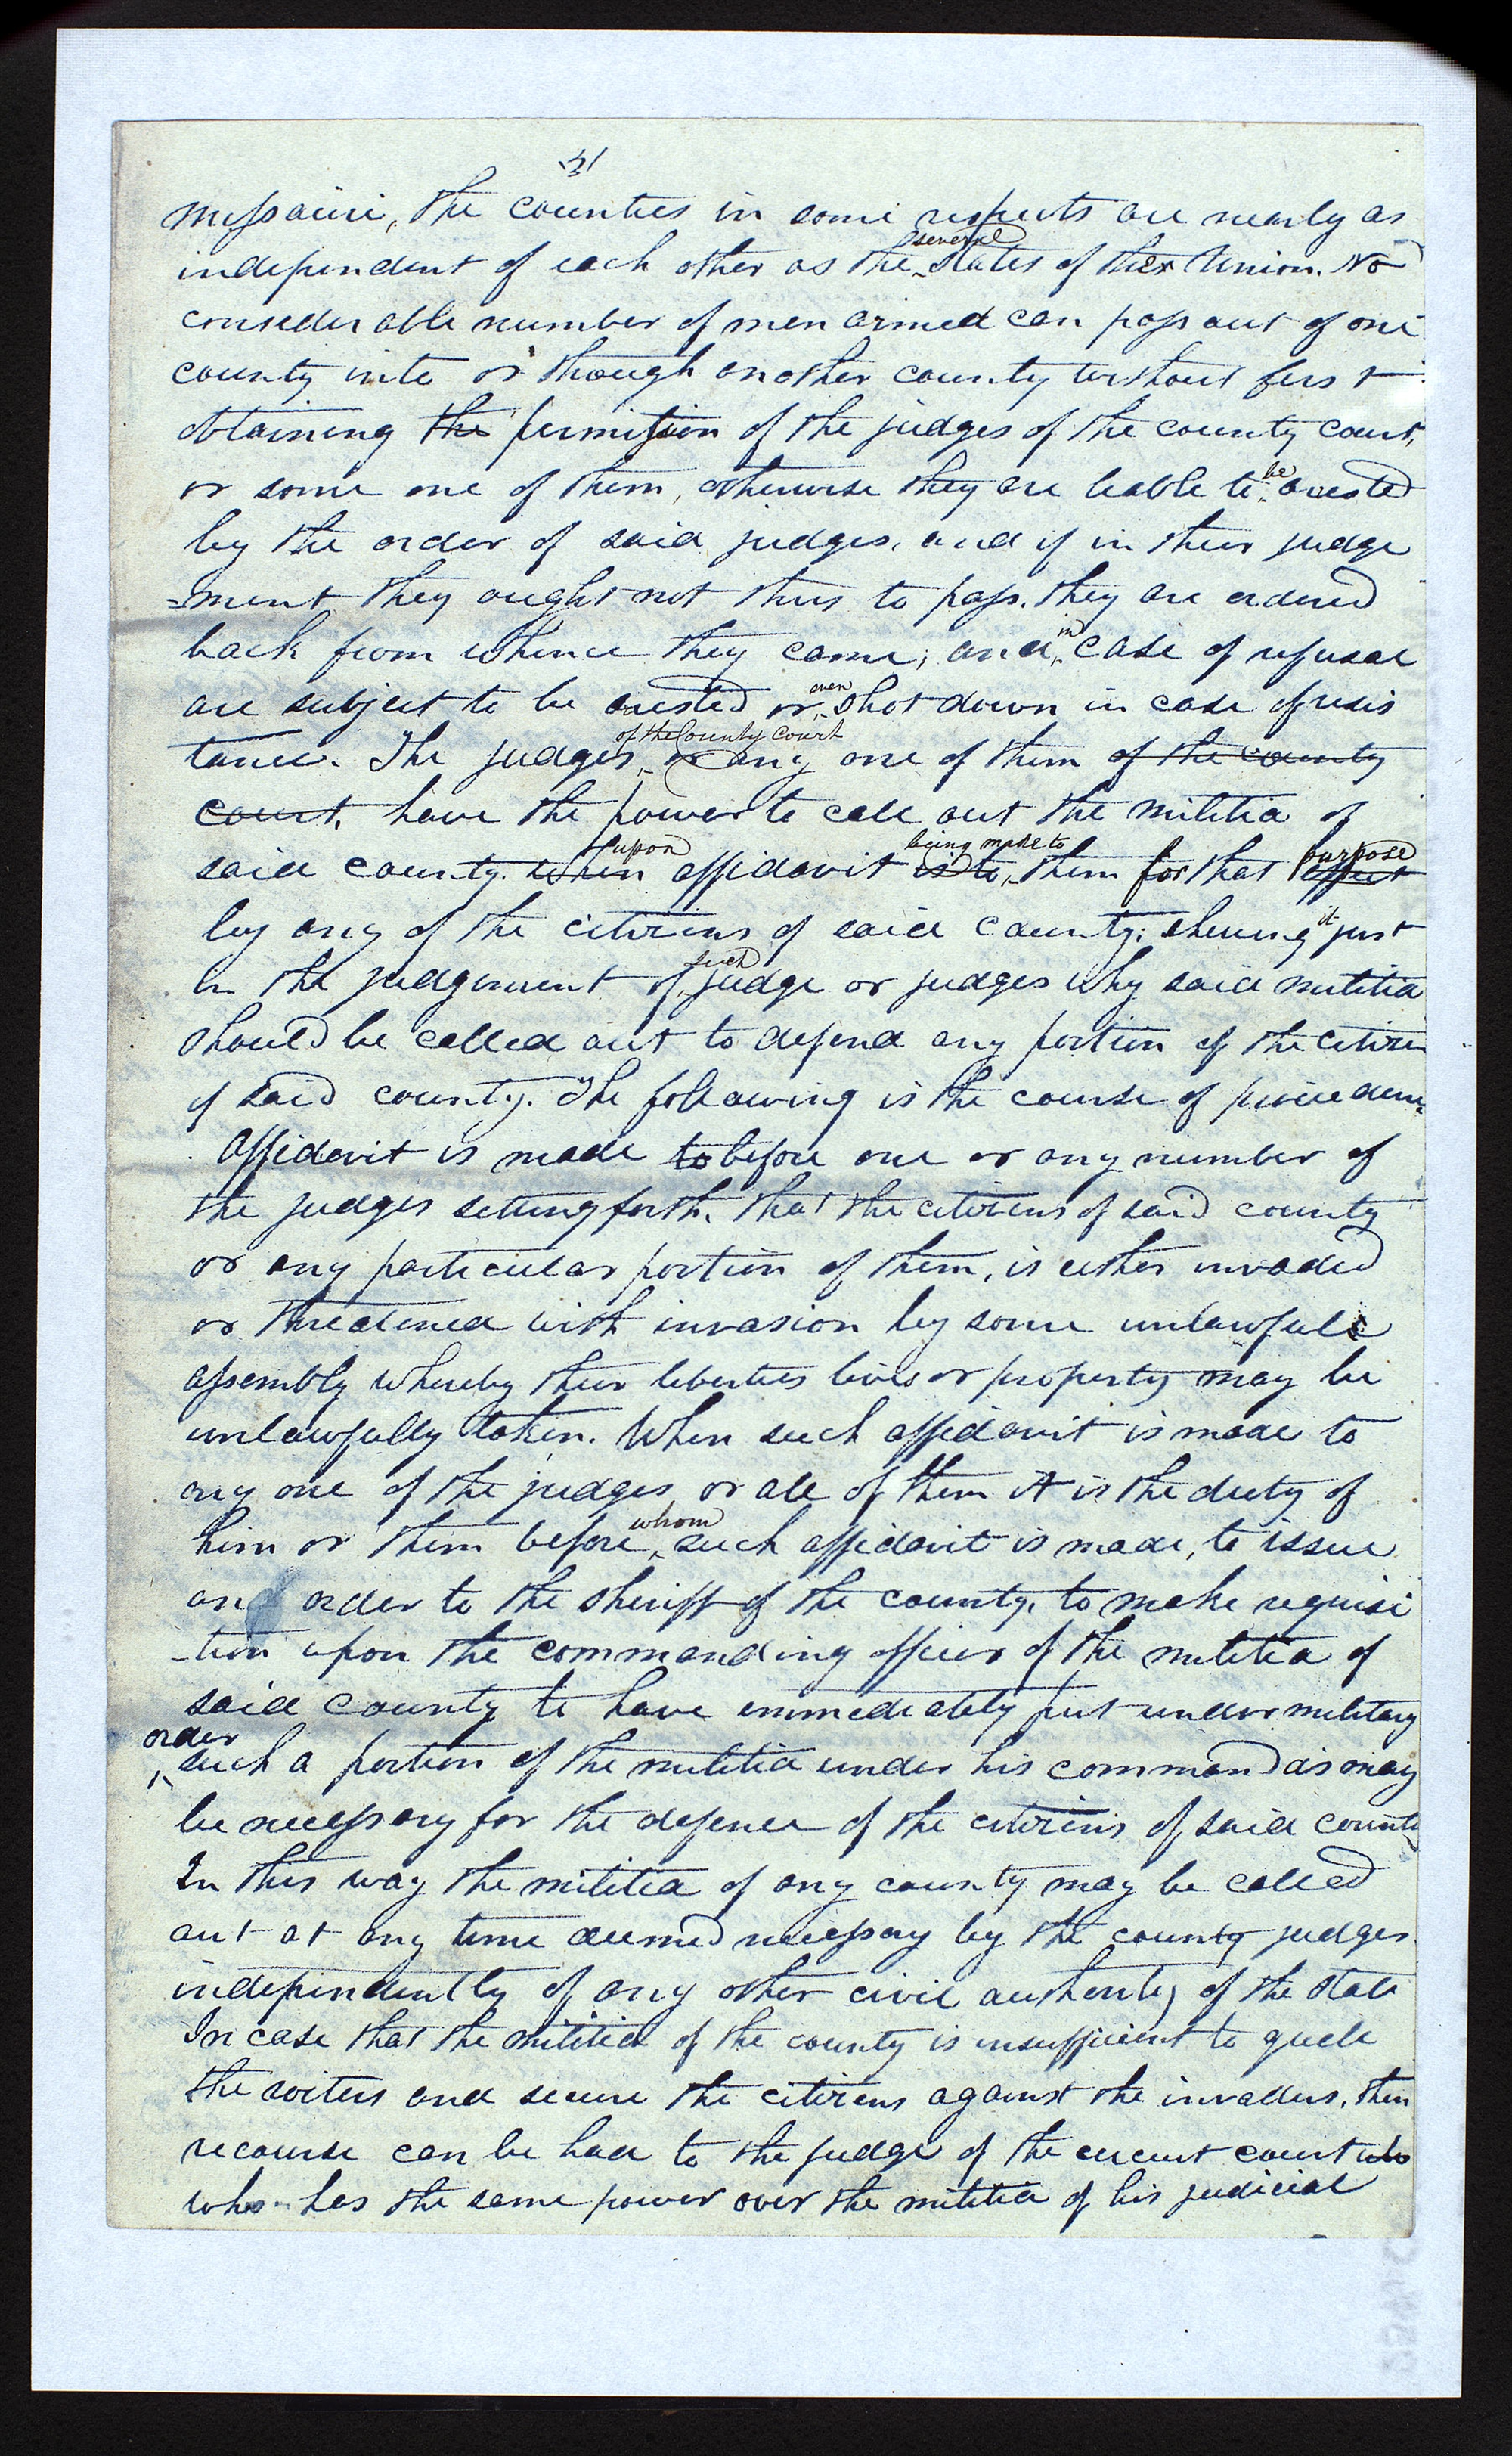 31
Missouri, the counties in some respects are nearly as
several
independent of each other as the states of the Union. No
considerable number of men armed can pass out of one
county into or though another county without first
obtaining the permission of the judges of the county court,
or some one of them, otherwise they are liable to be arested
by the order of said judges, and if in their judge
=ment they ought not thus to pass. they are ordered
back from whence they came; and in case of refusal
are subject to be arested or even shot down in case of resis
of the County Court
tance. The judges or any one of them of the county
court, have the power to call out the militia of
upon being made to purpose
said county when affidavit is to them for that effect
by any of the citizens of said county; shewing it just
such
in the judgement of judge or judges why said militia
should be called out to defend any portion of the citizen
of said county. The following is the course of
Affidavit is made to before one or any number of
the judges setting forth, that the citizens of said county
or any particular portion of them, is either invaded
or threatened with invasion by some unlawful
assembly whereby their liberties lives or property may be
unlawfully taken. When such affidavit is made to
any one of the judges or all of them it is the duty of
whom
him or them before such affidavit is made, to issue
an order to the sheriff of the county, to make requisi
-tion upon the commanding officer of the militia of
said county to have immediately put under military
order
such a portion of the militia under his command as may
be necessary for the defence of the citizens of said county
In this way the militia of any county may be called
out at any time deemed necessary by the county judges
independently of any other civil authority of the state
In case that the militia of the county is insufficient to quell
the rioters and secure the citizens against the invaders, then
recourse can be had to the judge of the circuit court who
who has the same power over the militia of his judicial